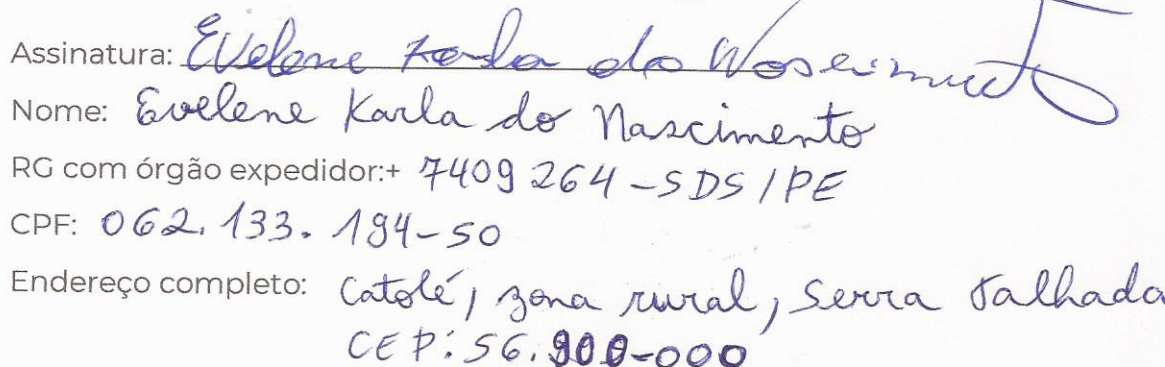 Assinatura: Evelene Karla do Nascimento
Nome: Evelene Karla do Nascimento
RG com órgão expedidor:+ 7409264-SDS/PE
CPF: 062.133.194-50
Endereço completo: Catolé, zona rural, Serra Talhada
CEP: 56.900-000